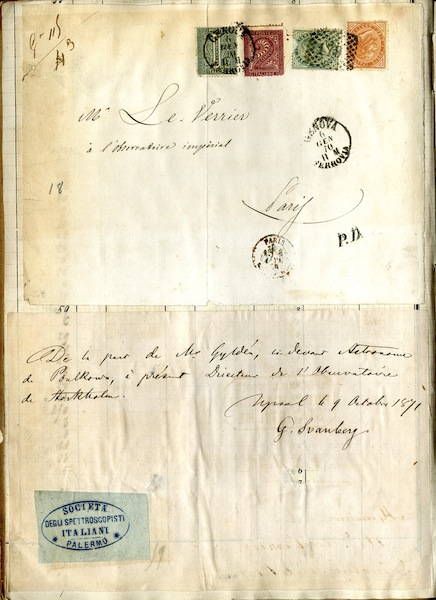 GENOVA
Mr Le Verrier
à l'observatoire impérial
Paris
GENOVA
6
GEN
70
11 M
FERROVIA
P.D.
PARIS
18
De la part de Mr Gyldén, ci-devant Astronome
de Pulkowa, à présent Directeur de l'Observatoire
de Stockholm.
Upsal le 9 Octobre 1871
G. Svanberg
SOCIETÀ
DEGLI SPETTROSCOPISTI
ITALIANI
PALERMO